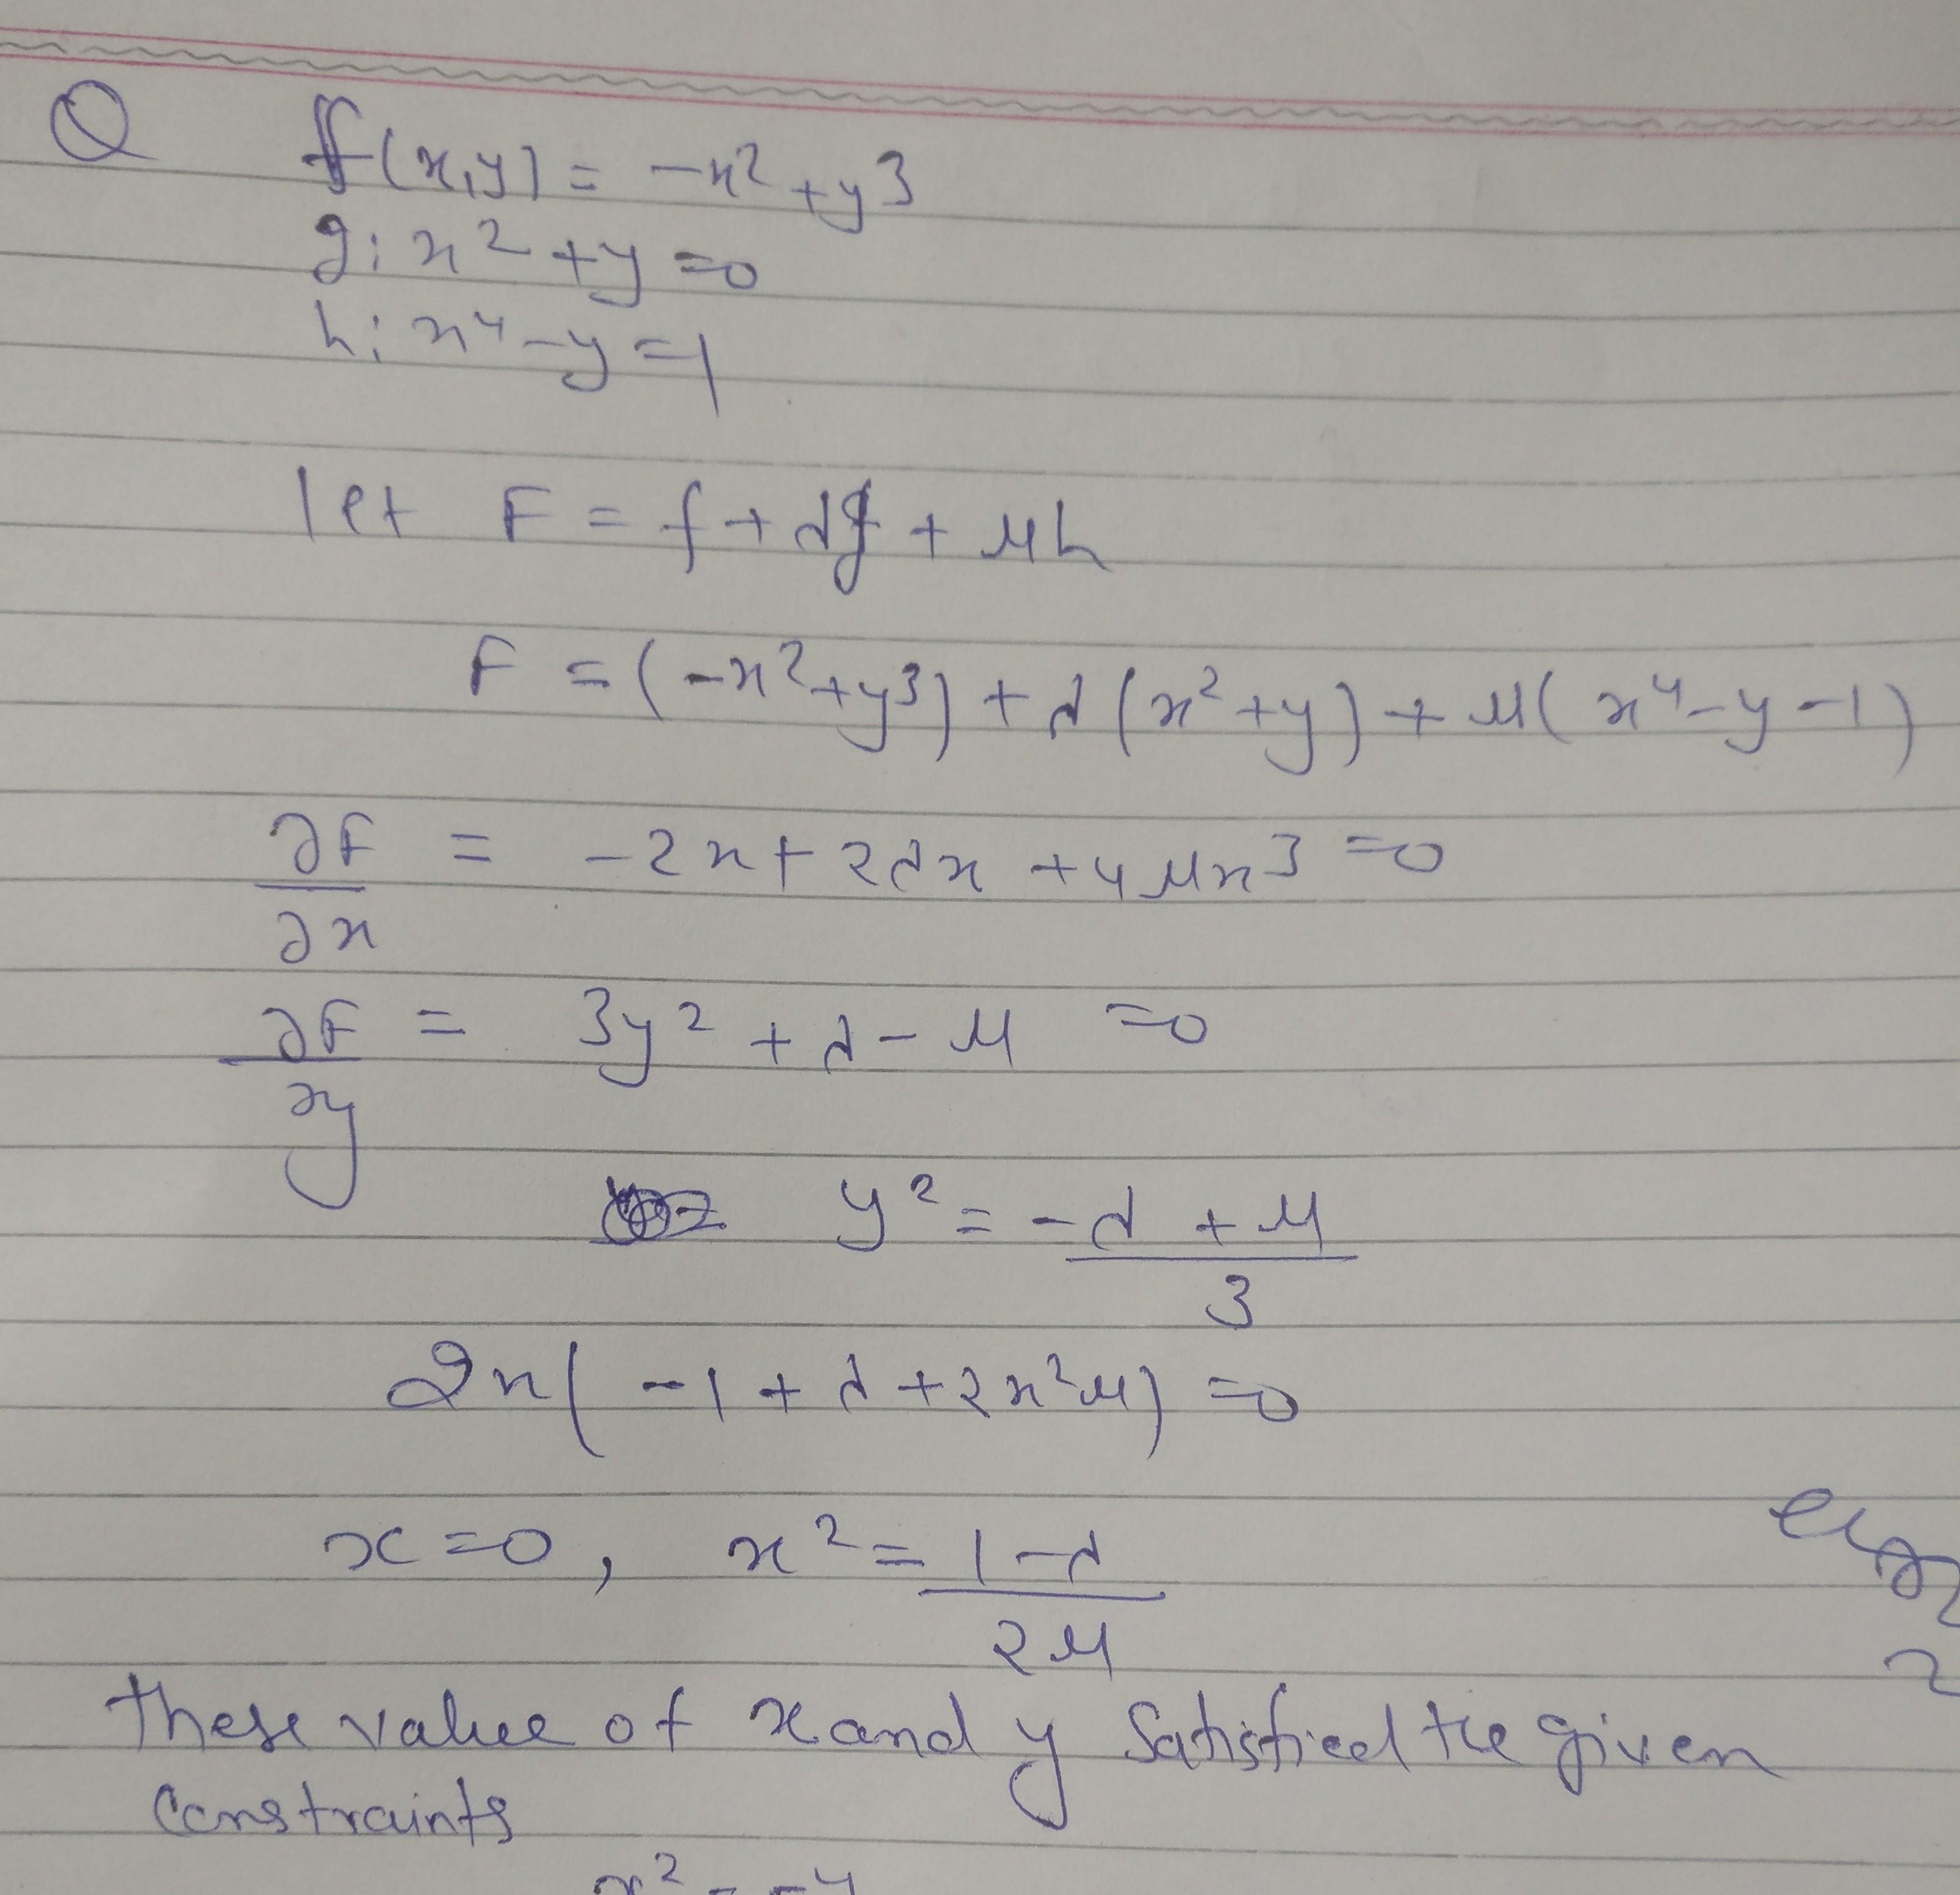 Q f(x,y) = -x² + y³
g: x² + y = 0
h: x⁴ - y = 1
let F = f + λg + μh
F = (-x² + y³) + λ(x² + y) + μ(x⁴ - y - 1)
∂F/∂x = -2x + 2λx + 4μx³ = 0
∂F/∂y = 3y² + λ - μ = 0
y² = (-λ + μ)/3
2x(-1 + λ + 2x²μ) = 0
x = 0, x² = (1 - λ)/2μ
These value of x and y Satisfied the given
Constraints
x² = -y